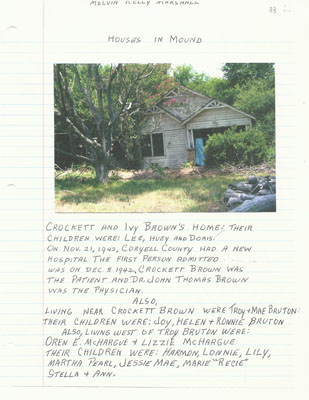 MELVIN KELLY MARSHALL
33
HOUSES IN MOUND
CROCKETT AND IVY BROWN'S HOME: THEIR
CHILDREN WERE: LEE, HUEY AND DORIS.
ON NOV. 21, 1942, CORYELL COUNTY HAD A NEW
HOSPITAL. THE FIRST PERSON ADMITTED
WAS ON DEC 5 1942, CROCKETT BROWN WAS
THE PATIENT AND DR. JOHN THOMAS BROWN
WAS THE PHYSICIAN.
ALSO,
LIVING NEAR CROCKETT BROWN WERE TROY & MAE BRUTON:
THEIR CHILDREN WERE: JOY, HELEN & RONNIE BRUTON
ALSO, LIVING WEST OF TROY BRUTON WERE:
OREN E. McHARGUE & LIZZIE McHARGUE.
THEIR CHILDREN WERE: HARMON, LONNIE, LILY,
MARTHA PEARL, JESSIE MAE, MARIE "RECIE"
STELLA & ANN.